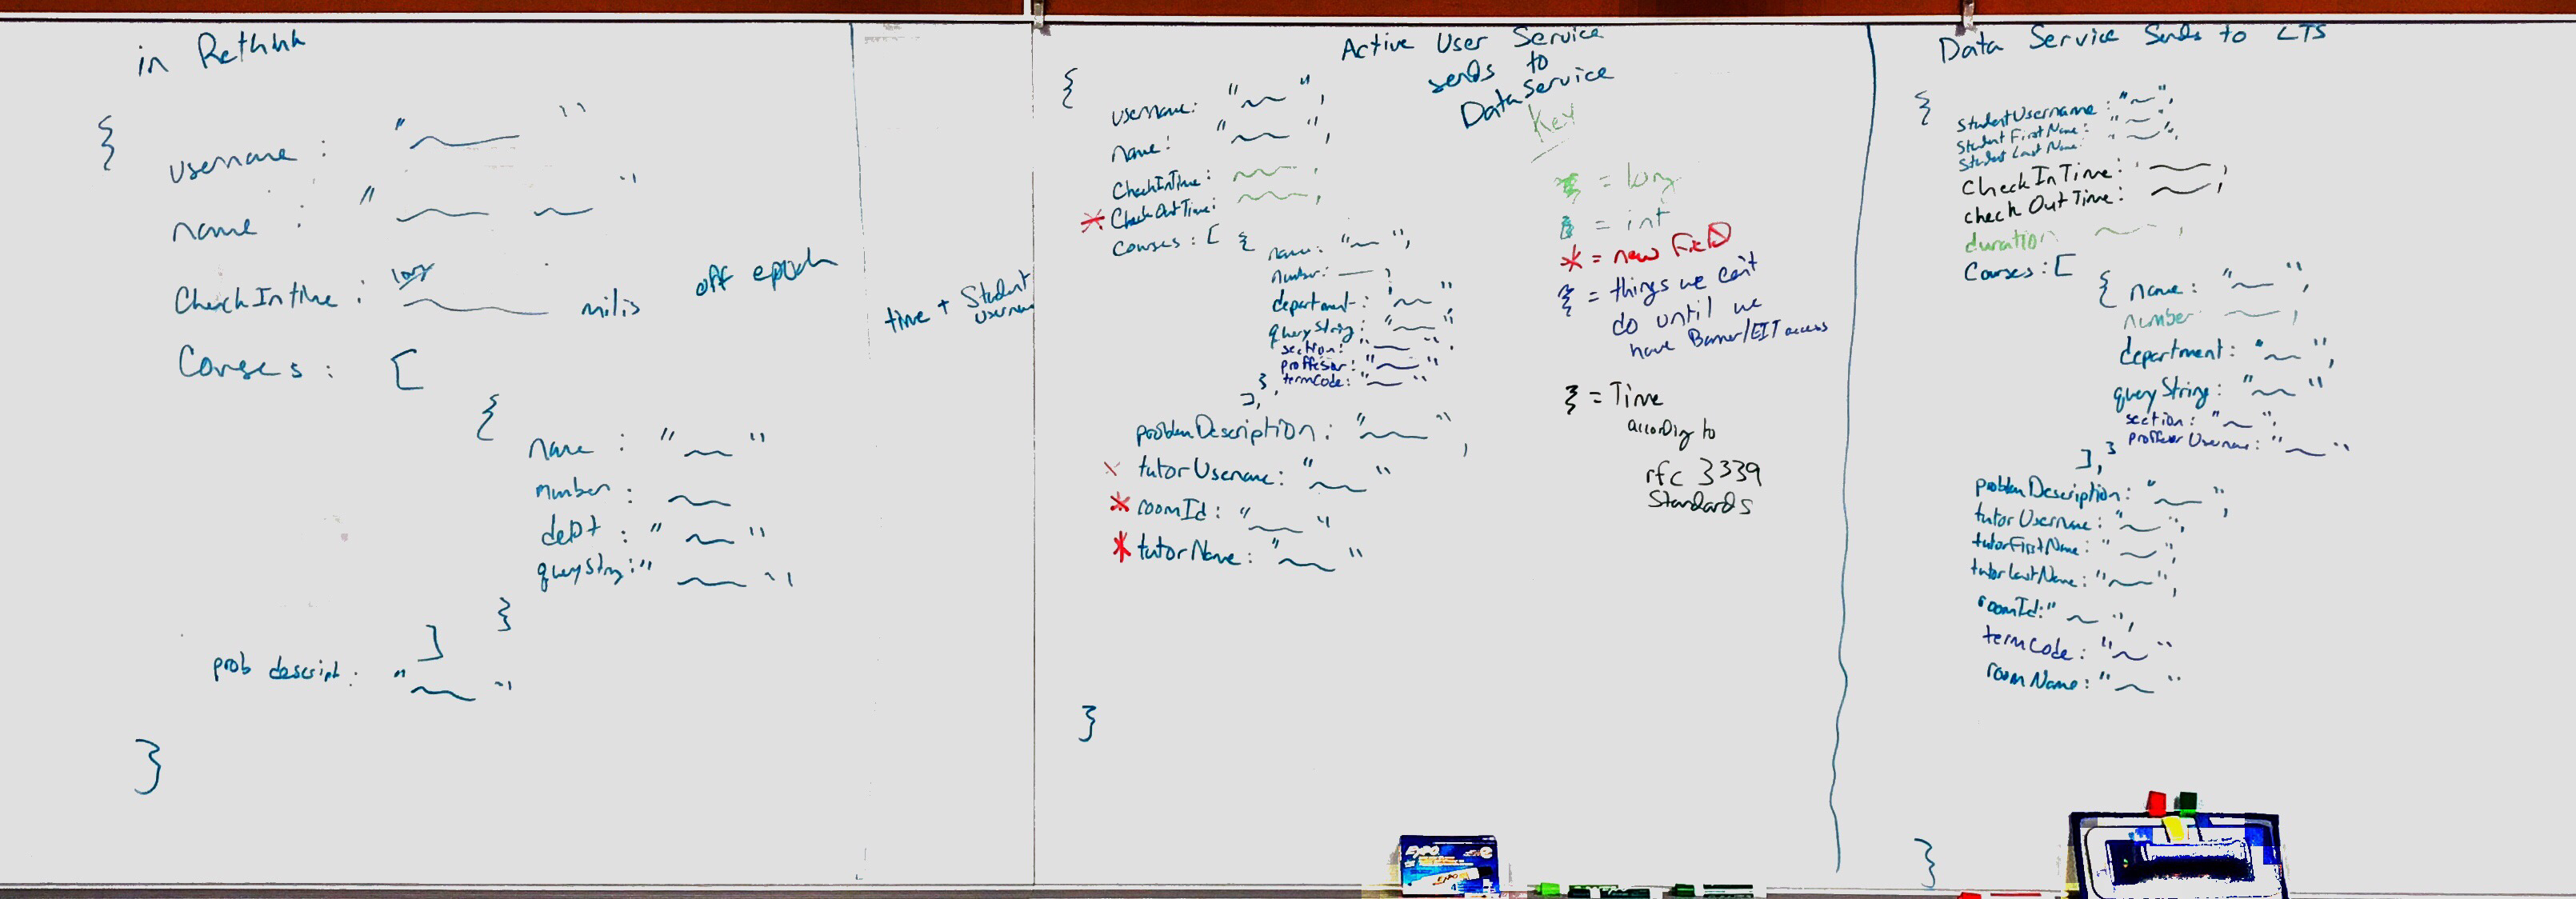 in Rethink
{
username : " "
name : " "
CheckIntime : long milis off epoch
Courses : [
{
name : " "
number :
dept : " "
queryString : " "
}
]
prob descript : " "
}
time + Student
username
Active User Service
sends to
Data Service
{
username: " ",
name: " ",
CheckInTime: ,
* CheckOutTime: ,
Courses : [ {
name: " ",
number: ,
department: " "
queryString: " "
section: " "
proffesor: " "
termCode: " "
}
],
problemDescription : " ",
* tutorUsername: " "
* roomId: " "
* tutorName: " "
}
Key
= long
= int
* = new Field
{ = things we can't
do until we
have Banner/EIT access
} = Time
according to
rfc 3339
Standards
Data Service Sends to LTS
{
StudentUsername : " ",
Student First Name: " ",
Student Last Name:
CheckInTime: ,
check OutTime: ,
duration ,
Courses : [
{ name : " ",
number ,
department: " ",
queryString: " "
section: " ",
proffesor Username: " "
}
],
problemDescription: " ",
tutor Username: " ",
tutorFirstName: " ",
tutorLastName: " ",
roomId: " ",
termCode: " "
roomName: " "
}
EXPO